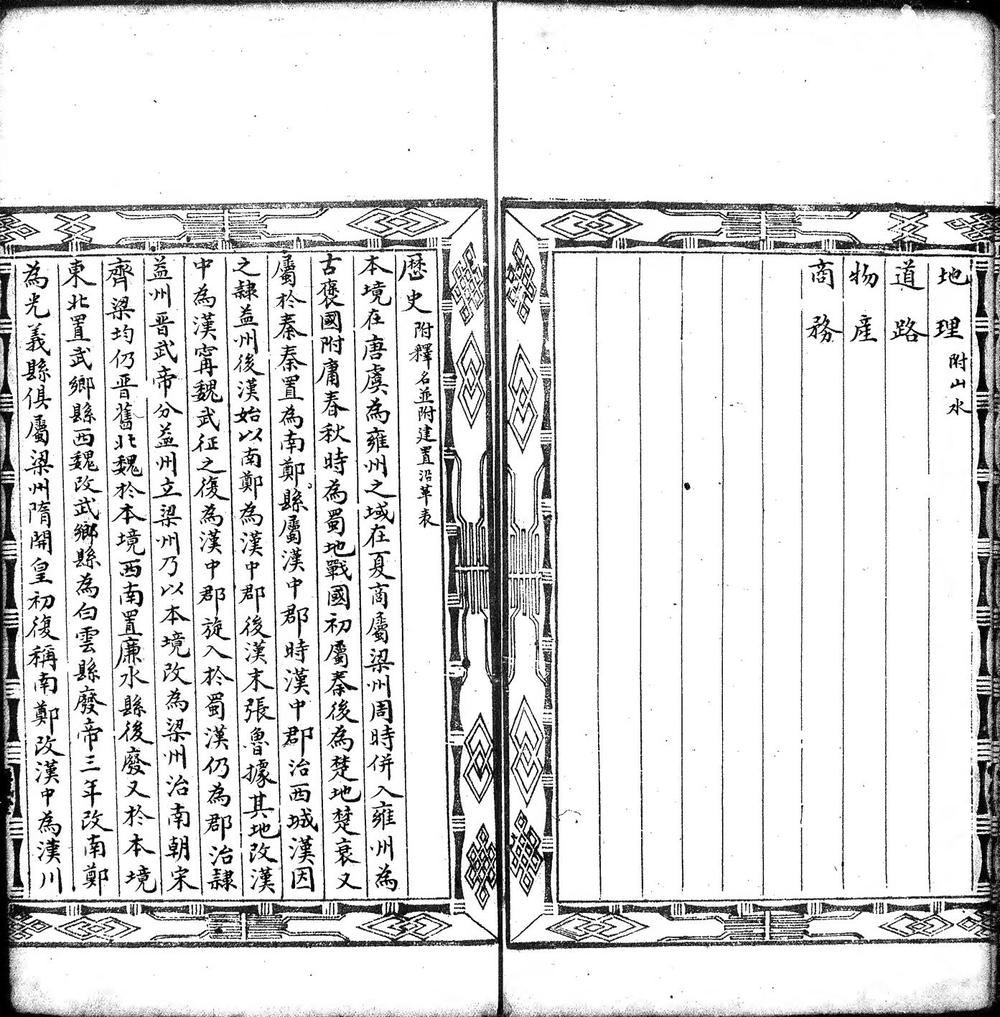 地理附山水
道路
物產
商務
歷史附釋名並附建置沿革表
本境在唐虞為雍州之域在夏商屬梁州周時併入雍州為
古褒國附庸春秋時為蜀地戰國初屬秦後為楚地楚衰又
屬於秦秦置為南鄭縣屬漢中郡時漢中郡治西城漢因
之隸益州後漢始以南鄭為漢中郡後漢末張魯據其地改漢
中為漢甯魏武征之復為漢中郡旋入於蜀漢仍為郡治隸
益州晋武帝分益州立梁州乃以本境改為梁州治南朝宋
齊梁均仍晋舊北魏於本境西南置廉水縣後廢又於本境
東北置武鄉縣西魏改武鄉縣為白雲縣廢帝三年改南鄭
為光義縣俱屬梁州隋開皇初復稱南鄭改漢中為漢川